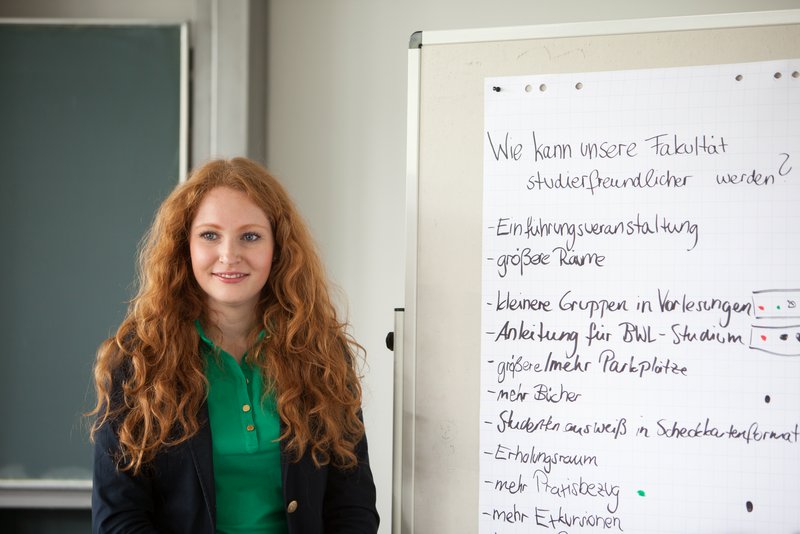 Wie kann unsere Fakultät
studierfreundlicher werden?
- Einführungsveranstaltung
- größere Räume
- kleinere Gruppen in Vorlesungen
- Anleitung für BWL-Studium
- größere/mehr Parkplätze
- mehr Bücher
- Studentenausweiß in Scheckkartenformat
- Erholungsraum
- mehr Praxisbezug
- mehr Exkursionen